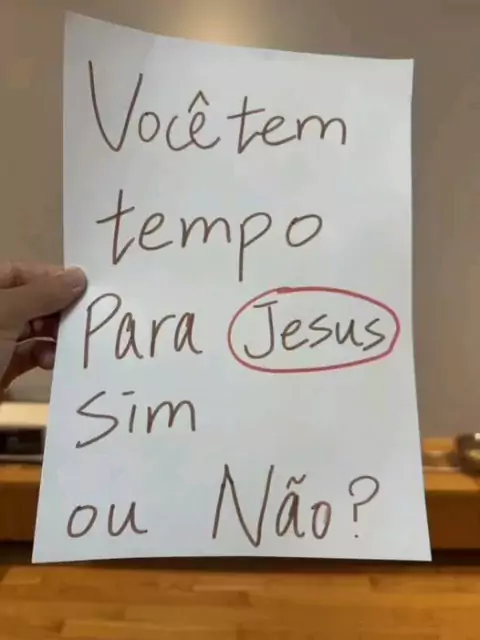 Você tem
tempo
Para Jesus
Sim
ou Não?